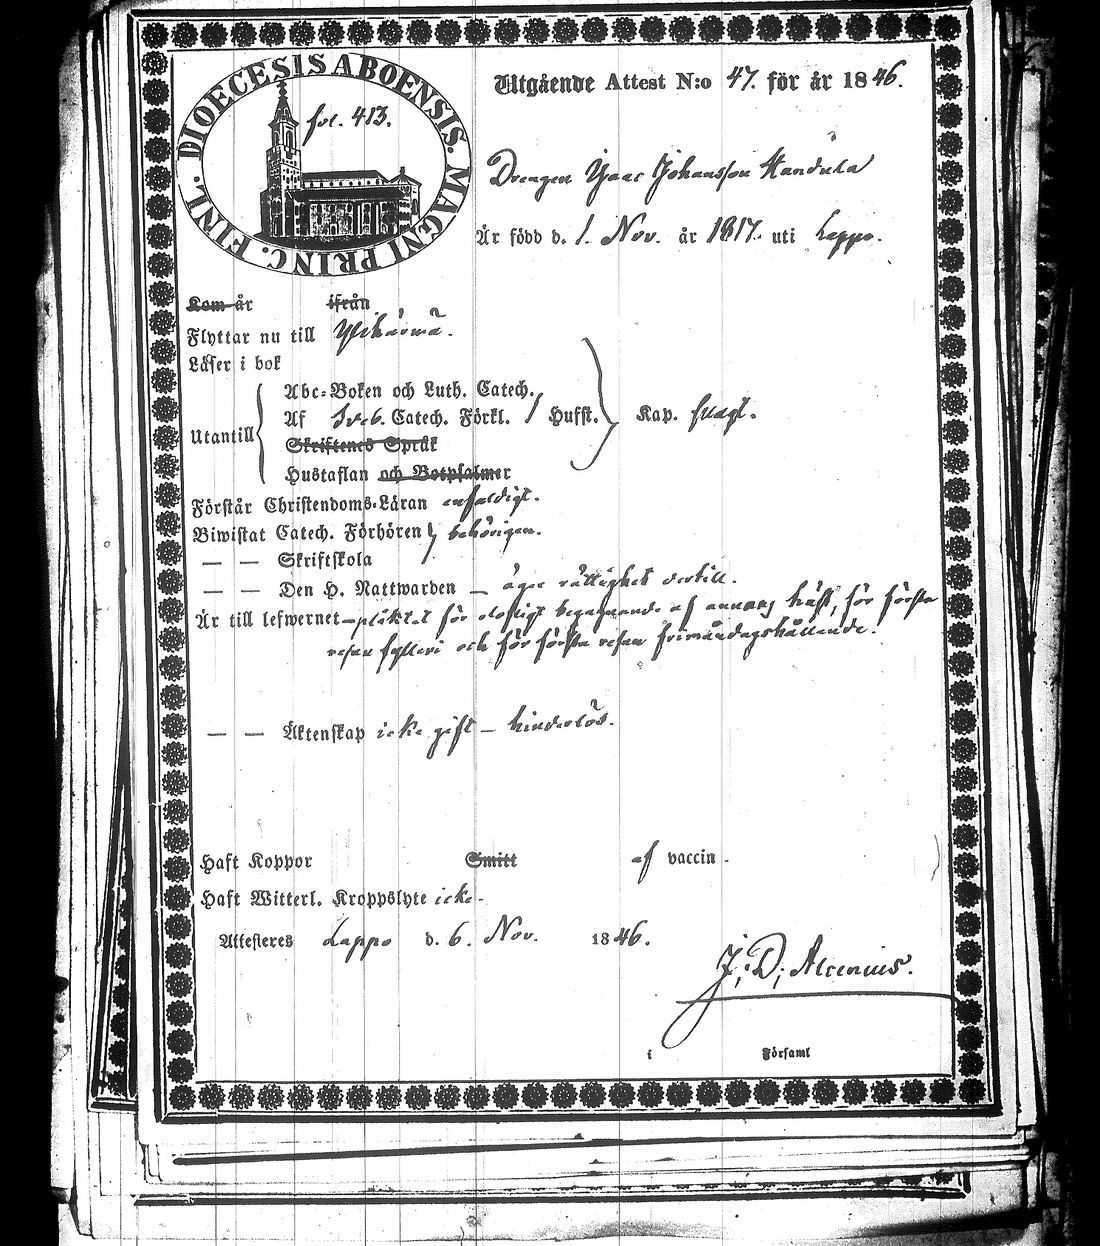 DIOECESIS ABOENSIS. MAGNI PRINC. FINL.
fol. 413.
Utgående Attest N:o 47. för år 1846.
Drengen Isaac Johansson Handula
Är född d. 1. Nov. år 1817. uti Lappo.
Kom år ifrån
Flyttar nu till Ylihärmä.
Läser i bok
Utantill
Abc-Boken och Luth. Catech.
Af Sveb. Catech. Förkl. / Husst. Kap. svagt.
Skriftenes Språk
Hustaflan och Botpsalmer
Förstår Christendoms-Läran enfaldigt.
Biwistat Catech. Förhören behörigen.
— — Skriftskola
— — Den H. Nattwarden — äger rättighet dertill.
Är till lefwernet – pliktat för olofligt begagnande af annans häst, för första
resan fylleri och för första resan frimåndagshållande.
— — Äktenskap icke gift – hinderlös.
Haft Koppor Smitt af vaccin.
Haft Witterl. Kroppslyte icke.
Attesteres Lappo d. 6. Nov. 1846.
J. D. Alcenius.
i Församl